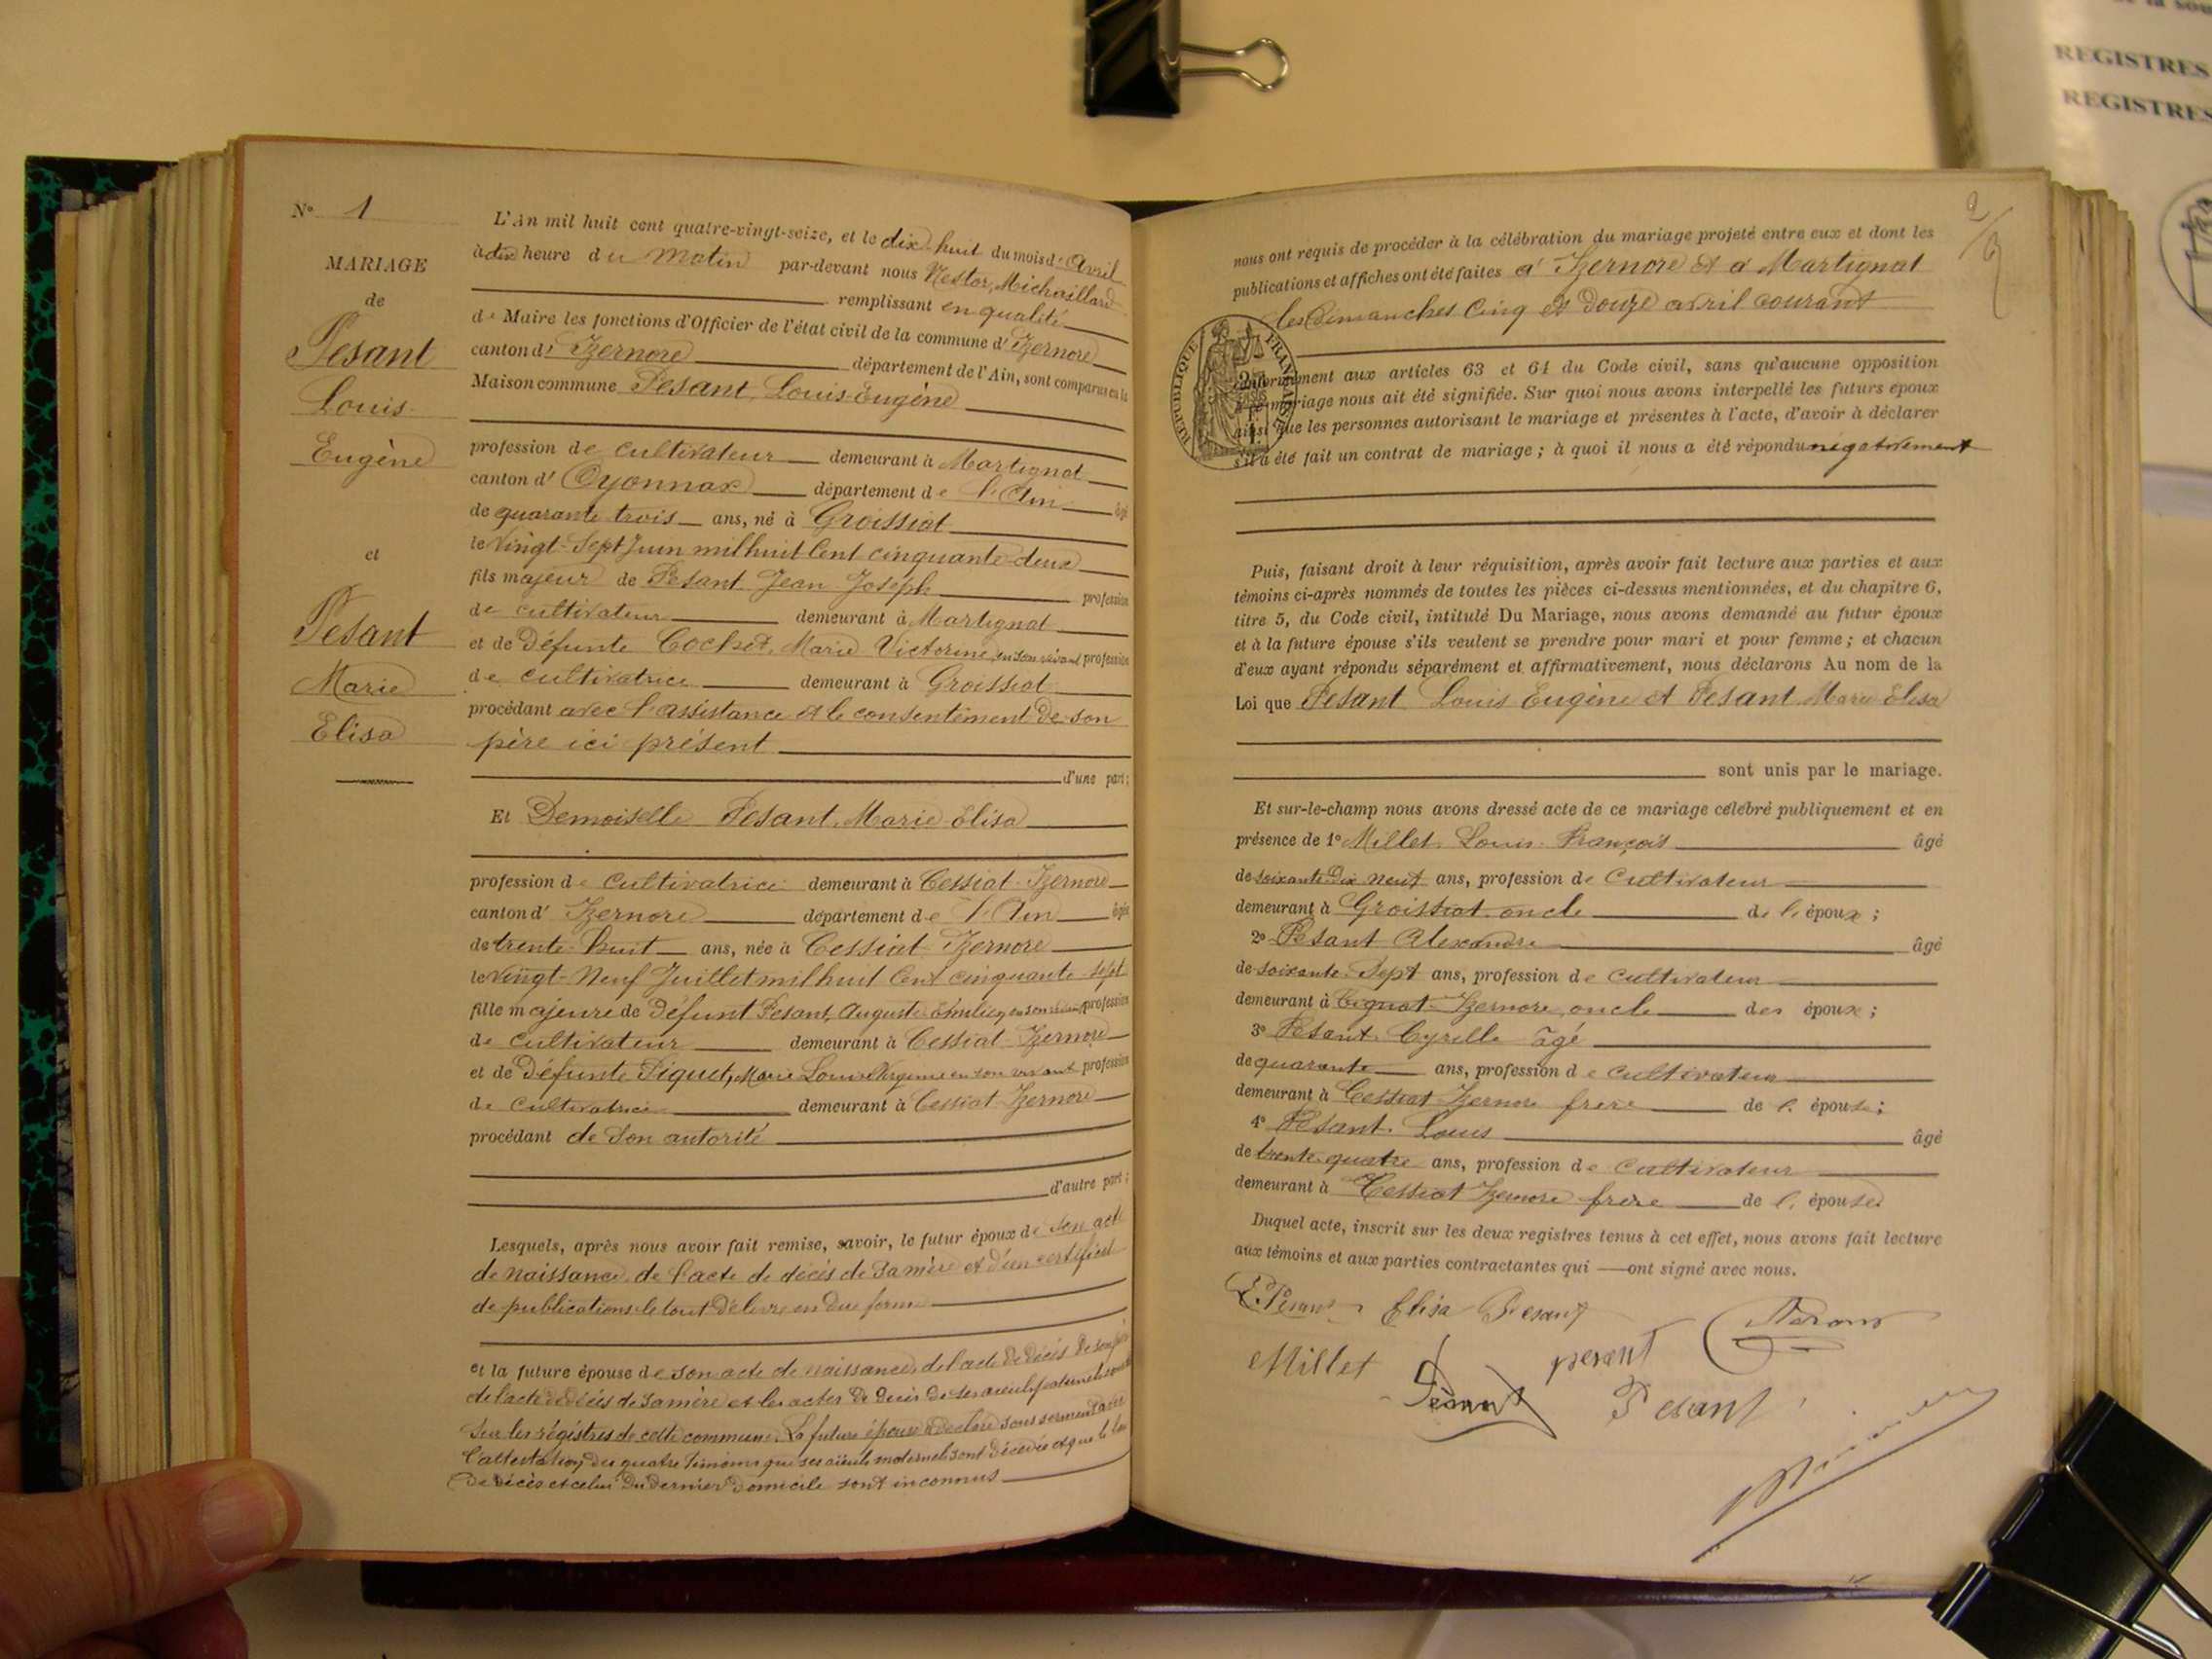 N° 1
MARIAGE
de
Pesant
Louis
Eugène
et
Pesant
Marie
Elisa
L'An mil huit cent quatre-vingt-seize, et le dix-huit du mois d'Avril
à dix heure du Matin par-devant nous Nestor, Michaillard
remplissant en qualité
de Maire les fonctions d'Officier de l'état civil de la commune d'Izernore
canton d'Izernore département de l'Ain, sont comparus en la
Maison commune Pesant, Louis-Eugène
profession de cultivateur demeurant à Martignat
canton d'Oyonnax département de l'Ain âgé
de quarante trois ans, né à Groissiat
le Vingt-Sept Juin mil huit Cent cinquante-deux
fils majeur de Pesant Jean-Joseph profession
de cultivateur demeurant à Martignat
et de Défunte Cochet, Marie Victorine, en son vivant profession
de cultivatrice demeurant à Groissiat
procédant avec l'assistance et le consentement de son
père ici présent
d'une part;
Et Demoiselle Pesant, Marie-Elisa
profession de Cultivatrice demeurant à Cessiat-Izernore
canton d'Izernore département de l'Ain âgée
de trente-huit ans, née à Cessiat Izernore
le Vingt-Neuf Juillet mil huit Cent cinquante-sept
fille majeure de Défunt Pesant, Auguste Emilien, en son vivant profession
de cultivateur demeurant à Cessiat-Izernore
et de Défunte Piquet, Marie Louise Virginie en son vivant profession
de cultivatrice demeurant à Cessiat-Izernore
procédant de son autorité
d'autre part;
Lesquels, après nous avoir fait remise, savoir, le futur époux de son acte
de naissance, de l'acte de décès de sa mère et d'un certificat
de publications le tout délivré en due forme
et la future épouse de son acte de naissance, de l'acte de décès de son père
de l'acte de décès de sa mère et les actes de décès de ses aieuls paternels
sur les régistres de cette commune. La future épouse a déclaré sous serment avec
l'attestation des quatre témoins que ses aïeuls maternels sont décédés et que le lieu
de décès et celui du dernier domicile sont inconnus
2/3
nous ont requis de procéder à la célébration du mariage projeté entre eux et dont les
publications et affiches ont été faites à Izernore et à Martignat
les Dimanches Cinq et Douze avril courant
RÉPUBLIQUE FRANÇAISE
conformément aux articles 63 et 64 du Code civil, sans qu'aucune opposition
à ce mariage nous ait été signifiée. Sur quoi nous avons interpellé les futurs époux
ainsi que les personnes autorisant le mariage et présentes à l'acte, d'avoir à déclarer
s'il a été fait un contrat de mariage; à quoi il nous a été répondu négativement
Puis, faisant droit à leur réquisition, après avoir fait lecture aux parties et aux
témoins ci-après nommés de toutes les pièces ci-dessus mentionnées, et du chapitre 6,
titre 5, du Code civil, intitulé Du Mariage, nous avons demandé au futur époux
et à la future épouse s'ils veulent se prendre pour mari et pour femme; et chacun
d'eux ayant répondu séparément et affirmativement, nous déclarons Au nom de la
Loi que Pesant Louis Eugène et Pesant Marie-Elisa
sont unis par le mariage.
Et sur-le-champ nous avons dressé acte de ce mariage célébré publiquement et en
présence de 1° Millet Louis-François âgé
de soixante-Dix neuf ans, profession de Cultivateur
demeurant à Groissiat oncle de l'époux;
2° Pesant Alexandre âgé
de soixante-Sept ans, profession de cultivateur
demeurant à Tignat-Izernore, oncle des époux;
3° Pesant Cyrille âgé
de quarante ans, profession de cultivateur
demeurant à Cessiat Izernore frère de l'épouse;
4° Pesant Louis âgé
de trente-quatre ans, profession de Cultivateur
demeurant à Cessiat Izernore frère de l'épouse
Duquel acte, inscrit sur les deux registres tenus à cet effet, nous avons fait lecture
aux témoins et aux parties contractantes qui ont signé avec nous.
E. Pesant Elisa Pesant
Millet Pesant pesant Pesant
REGISTRES
REGISTRES